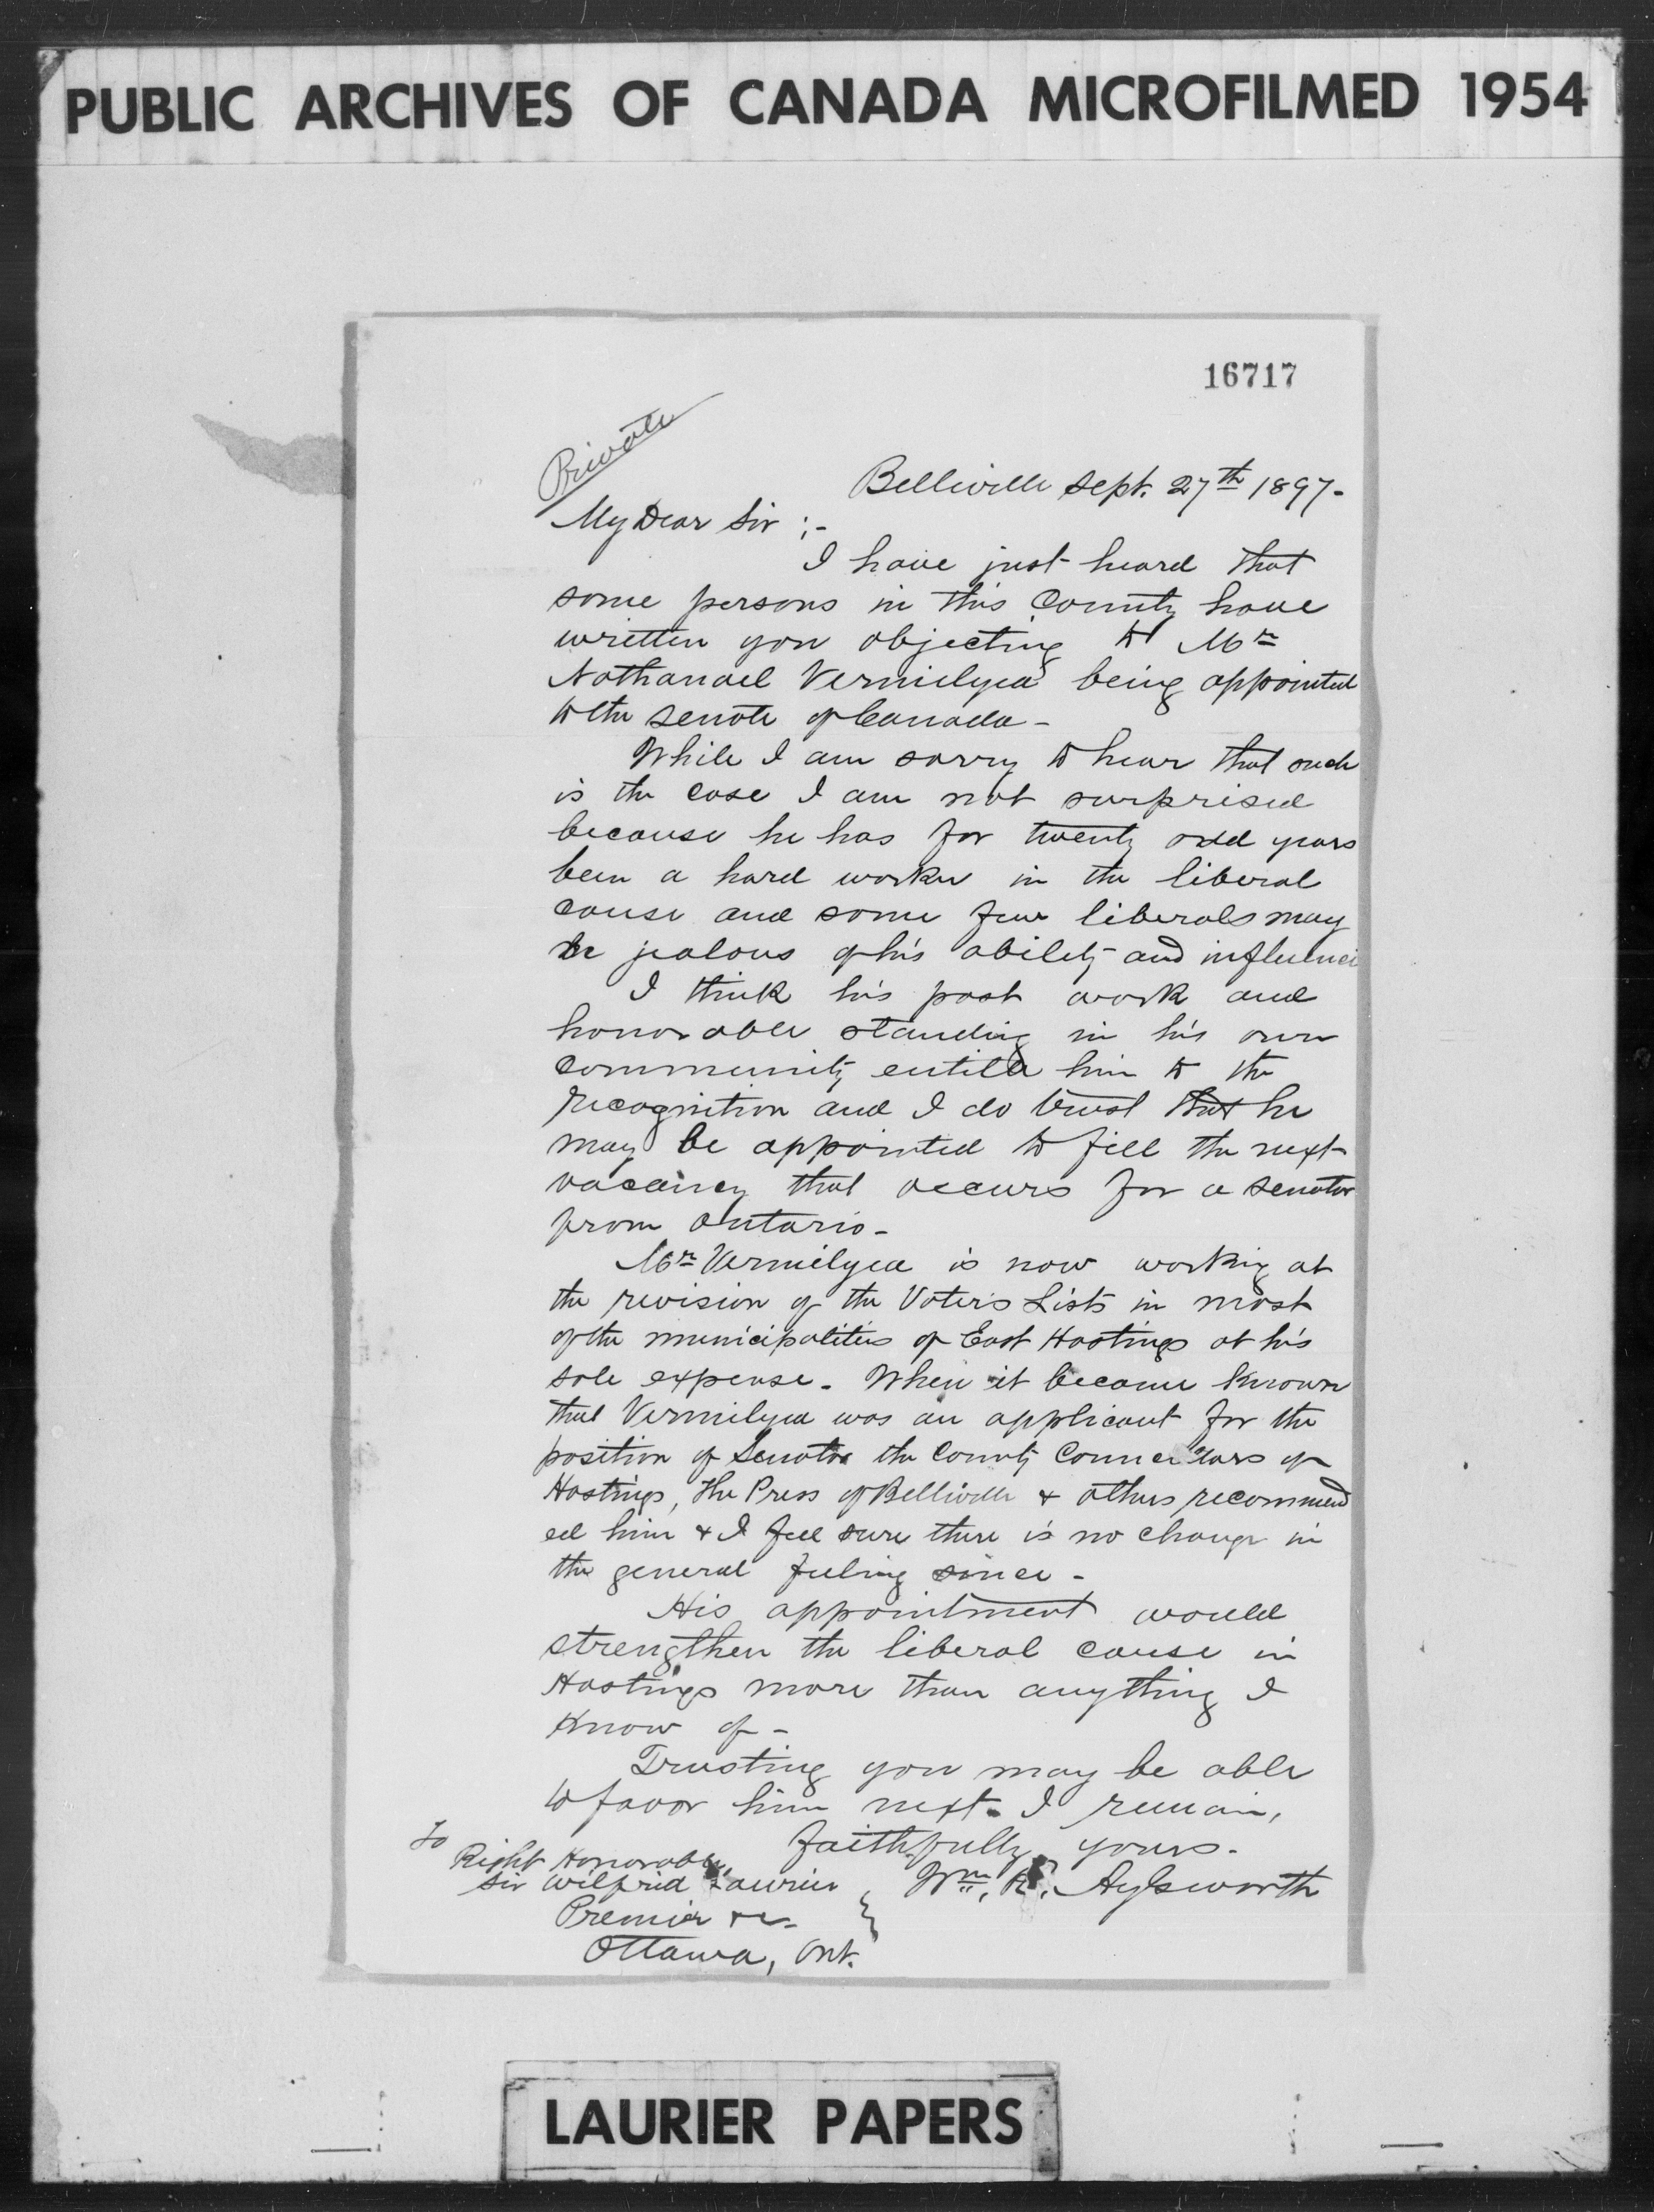 PUBLIC ARCHIVES OF CANADA MICROFILMED 1954
16717
Private
Belleville Sept. 27th 1897-
My Dear Sir :-
I have just heard that
some persons in this County have
written you objecting to Mr
Nathanael Vermilyea being appointed
to the Senate of Canada -
While I am sorry to hear that such
is the case I am not surprised
because he has for twenty odd years
been a hard worker in the liberal
cause and some few liberals may
be jealous of his ability and influence
I think his past work and
honorable standing in his own
community entitle him to the
recognition and I do trust that he
may be appointed to fill the next
vacancy that occurs for a Senator
from Ontario -
Mr Vermilyea is now working at
the revision of the Voters Lists in most
of the municipalities of East Hastings at his
sole expense - When it became known
that Vermilyea was an applicant for the
position of Senator the County Councillors of
Hastings, The Press of Belleville & others recommend
ed him & I feel sure there is no change in
the general feeling since -
His appointment would
strengthen the liberal cause in
Hastings more than anything I
know of -
Trusting you may be able
to favor him next - I remain,
Faithfully yours -
Wm. R. Aylsworth
To
Right Honorable,
Sir Wilfrid Laurier
Premier &c -
Ottawa, Ont.
LAURIER PAPERS